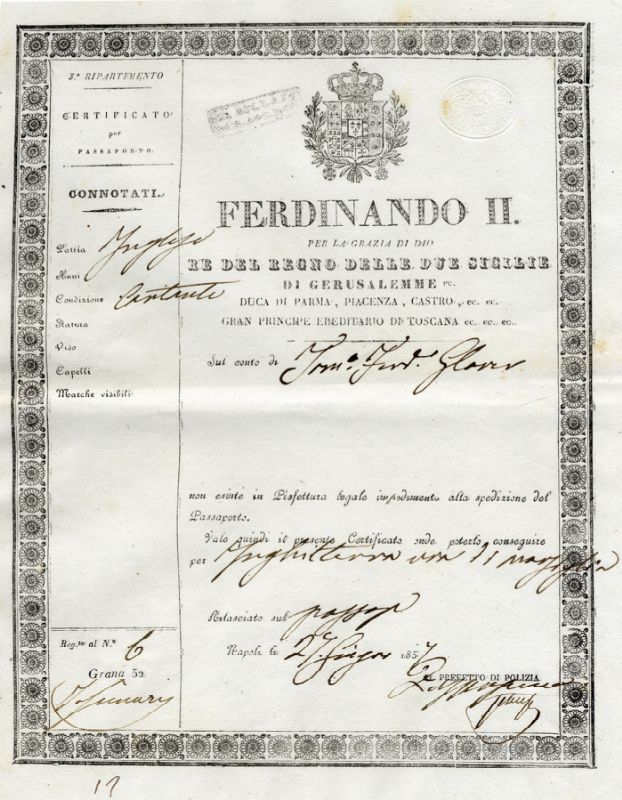 3.º RIPARTEMENTO
CERTIFICATO
per
PASSAPORTO.
CONNOTATI.
Patria Inglese
Anni
Condizione
Statura
Viso
Capelli
Marche visibili
Reg.to al N.º 6
Grana 52
FERDINANDO II.
PER LA GRAZIA DI DIO
RE DEL REGNO DELLE DUE SICILIE
DI GERUSALEMME ec.
DUCA DI PARMA, PIACENZA, CASTRO, ec. ec.
GRAN PRINCIPE EREDITARIO DI TOSCANA ec. ec. ec.
Sul conto di Tom.º Ferd.º Glover
non esiste in Prefettura legale impedimento alla spedizione del
Passaporto.
Vale quindi il presente Certificato onde poterlo conseguire
per Inghilterra via di Marsiglia
Rilasciato sul passap
Napoli li 27 1857
IL PREFETTO DI POLIZIA